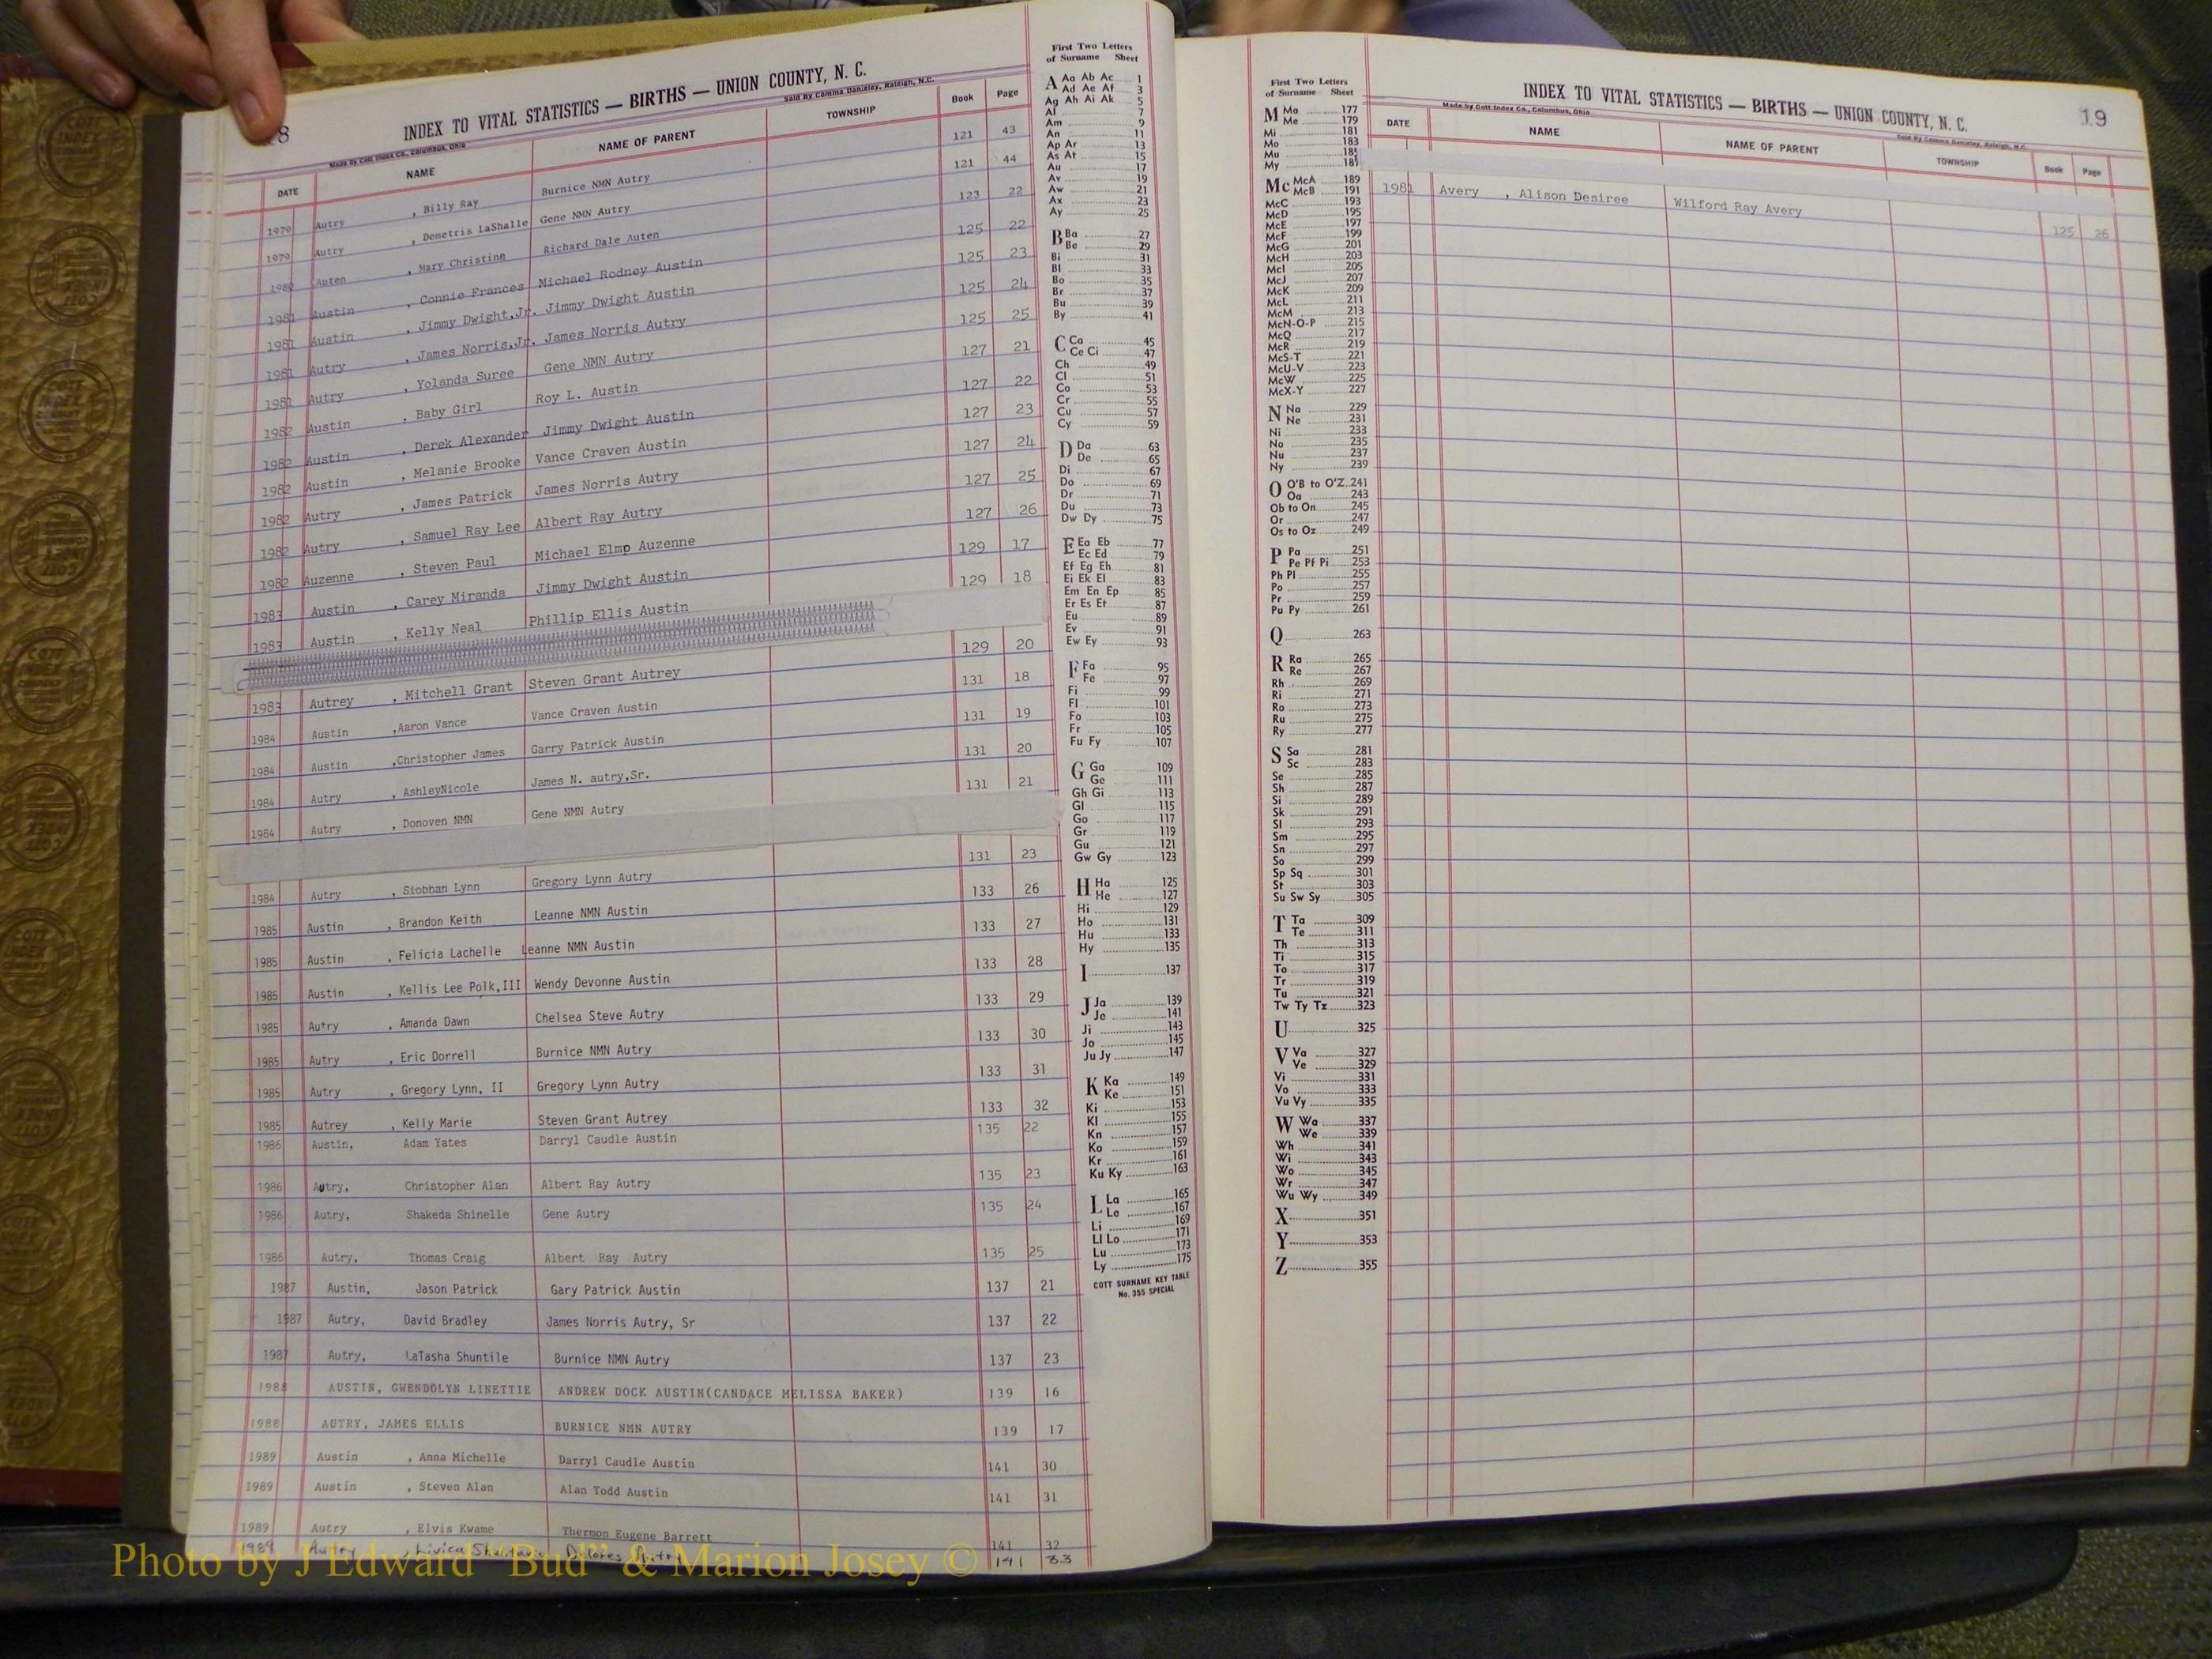 18
INDEX TO VITAL STATISTICS — BIRTHS — UNION COUNTY, N. C.
Made by Cott Index Co., Columbus, Ohio
Sold By Comma Danieley, Raleigh, N.C.
DATE NAME NAME OF PARENT TOWNSHIP Book Page
1979 Autry , Billy Ray Burnice NMN Autry 121 43
1979 Autry , Demetris LaShalle Gene NMN Autry 121 44
1980 Auten , Mary Christine Richard Dale Auten 123 22
1981 Austin , Connie Frances Michael Rodney Austin 125 22
1981 Austin , Jimmy Dwight,Jr. Jimmy Dwight Austin 125 23
1981 Autry , James Norris,Jr. James Norris Autry 125 24
1981 Autry , Yolanda Suree Gene NMN Autry 125 25
1982 Austin , Baby Girl Roy L. Austin 127 21
1982 Austin , Derek Alexander Jimmy Dwight Austin 127 22
1982 Austin , Melanie Brooke Vance Craven Austin 127 23
1982 Autry , James Patrick James Norris Autry 127 24
1982 Autry , Samuel Ray Lee Albert Ray Autry 127 25
1982 Auzenne , Steven Paul Michael Elmo Auzenne 127 26
1983 Austin , Carey Miranda Jimmy Dwight Austin 129 17
1983 Austin , Kelly Neal Phillip Ellis Austin 129 18
1983 Autrey , Mitchell Grant Steven Grant Autrey 129 20
1984 Austin ,Aaron Vance Vance Craven Austin 131 18
1984 Austin ,Christopher James Garry Patrick Austin 131 19
1984 Autry , AshleyNicole James N. autry,Sr. 131 20
1984 Autry , Donoven NMN Gene NMN Autry 131 21
1984 Autry , Siobhan Lynn Gregory Lynn Autry 131 23
1985 Austin , Brandon Keith Leanne NMN Austin 133 26
1985 Austin , Felicia Lachelle Leanne NMN Austin 133 27
1985 Austin , Kellis Lee Polk,III Wendy Devonne Austin 133 28
1985 Autry , Amanda Dawn Chelsea Steve Autry 133 29
1985 Autry , Eric Dorrell Burnice NMN Autry 133 30
1985 Autry , Gregory Lynn, II Gregory Lynn Autry 133 31
1985 Autrey , Kelly Marie Steven Grant Autrey 133 32
1986 Austin, Adam Yates Darryl Caudle Austin 135 22
1986 Autry, Christopher Alan Albert Ray Autry 135 23
1986 Autry, Shakeda Shinelle Gene Autry 135 24
1986 Autry, Thomas Craig Albert Ray Autry 135 25
1987 Austin, Jason Patrick Gary Patrick Austin 137 21
1987 Autry, David Bradley James Norris Autry, Sr 137 22
1987 Autry, LaTasha Shuntile Burnice NMN Autry 137 23
1988 AUSTIN, GWENDOLYN LINETTIE ANDREW DOCK AUSTIN(CANDACE MELISSA BAKER) 139 16
1988 AUTRY, JAMES ELLIS BURNICE NMN AUTRY 139 17
1989 Austin , Anna Michelle Darryl Caudle Austin 141 30
1989 Austin , Steven Alan Alan Todd Austin 141 31
1989 Autry , Elvis Kwame Thermon Eugene Barrett 141 32
1989 Autry , Livica Delores Autry 141 33
First Two Letters
of Surname Sheet
A Aa Ab Ac 1
Ad Ae Af 3
Ag Ah Ai Ak 5
Al 7
Am 9
An 11
Ap Ar 13
As At 15
Au 17
Av 19
Aw 21
Ax 23
Ay 25
B Ba 27
Be 29
Bi 31
Bl 33
Bo 35
Br 37
Bu 39
By 41
C Ca 45
Ce Ci 47
Ch 49
Cl 51
Co 53
Cr 55
Cu 57
Cy 59
D Da 63
De 65
Di 67
Do 69
Dr 71
Du 73
Dw Dy 75
E Ea Eb 77
Ec Ed 79
Ef Eg Eh 81
Ei Ek El 83
Em En Ep 85
Er Es Et 87
Eu 89
Ev 91
Ew Ey 93
F Fa 95
Fe 97
Fi 99
Fl 101
Fo 103
Fr 105
Fu Fy 107
G Ga 109
Ge 111
Gh Gi 113
Gl 115
Go 117
Gr 119
Gu 121
Gw Gy 123
H Ha 125
He 127
Hi 129
Ho 131
Hu 133
Hy 135
I 137
J Ja 139
Je 141
Ji 143
Jo 145
Ju Jy 147
K Ka 149
Ke 151
Ki 153
Kl 155
Kn 157
Ko 159
Kr 161
Ku Ky 163
L La 165
Le 167
Li 169
Ll Lo 171
Lu 173
Ly 175
COTT SURNAME KEY TABLE
No. 355 SPECIAL
First Two Letters
of Surname Sheet
M Ma 177
Me 179
Mi 181
Mo 183
Mu 185
My
Mc McA 189
McB 191
McC 193
McD 195
McE 197
McF 199
McG 201
McH 203
McI 205
McJ 207
McK 209
McL 211
McM 213
McN-O-P 215
McQ 217
McR 219
McS-T 221
McU-V 223
McW 225
McX-Y 227
N Na 229
Ne 231
Ni 233
No 235
Nu 237
Ny 239
O O'B to O'Z 241
Oa 243
Ob to On 245
Or 247
Os to Oz 249
P Pa 251
Pe Pf Pi 253
Ph Pl 255
Po 257
Pr 259
Pu Py 261
Q 263
R Ra 265
Re 267
Rh 269
Ri 271
Ro 273
Ru 275
Ry 277
S Sa 281
Sc 283
Se 285
Sh 287
Si 289
Sk 291
Sl 293
Sm 295
Sn 297
So 299
Sp Sq 301
St 303
Su Sw Sy 305
T Ta 309
Te 311
Th 313
Ti 315
To 317
Tr 319
Tu 321
Tw Ty Tz 323
U 325
V Va 327
Ve 329
Vi 331
Vo 333
Vu Vy 335
W Wa 337
We 339
Wh 341
Wi 343
Wo 345
Wr 347
Wu Wy 349
X 351
Y 353
Z 355
INDEX TO VITAL STATISTICS — BIRTHS — UNION COUNTY, N. C.
19
Made by Cott Index Co., Columbus, Ohio
Sold By Comma Danieley, Raleigh, N.C.
DATE NAME NAME OF PARENT TOWNSHIP Book Page
1981 Avery , Alison Desiree Wilford Ray Avery 125 26
Photo by J Edward “Bud” & Marion Josey ©